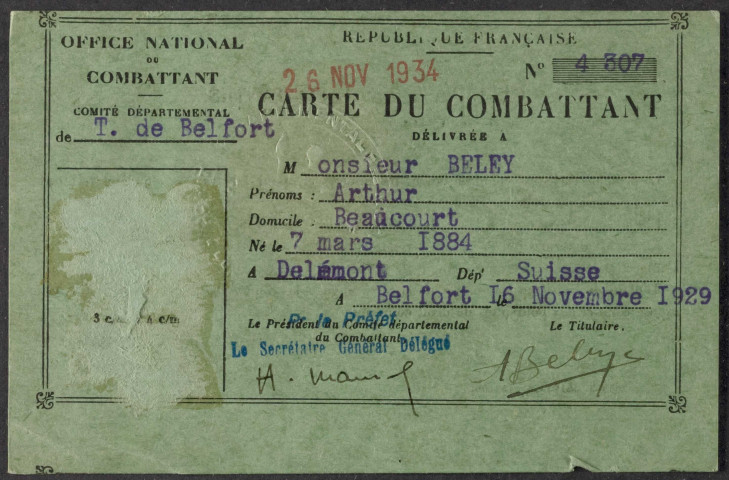 OFFICE NATIONAL
DU
COMBATTANT
COMITÉ DÉPARTEMENTAL
de T. de Belfort
RÉPUBLIQUE FRANÇAISE
26 NOV 1934
Nº 4 307
CARTE DU COMBATTANT
DÉLIVRÉE A
Monsieur BELEY
Prénoms : Arthur
Domicile . Beaucourt
Né le 7 mars I884
A Delémont Dépt Suisse
A Belfort le I6 Novembre I929
Le Président du Comité départemental
du Combattant
Pr le Préfet
Le Secrétaire Général Délégué
Le Titulaire.
ABeley